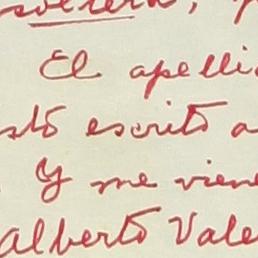 soltera, 
El apelli
stó escrito a
Y me viene
Alberto Vale